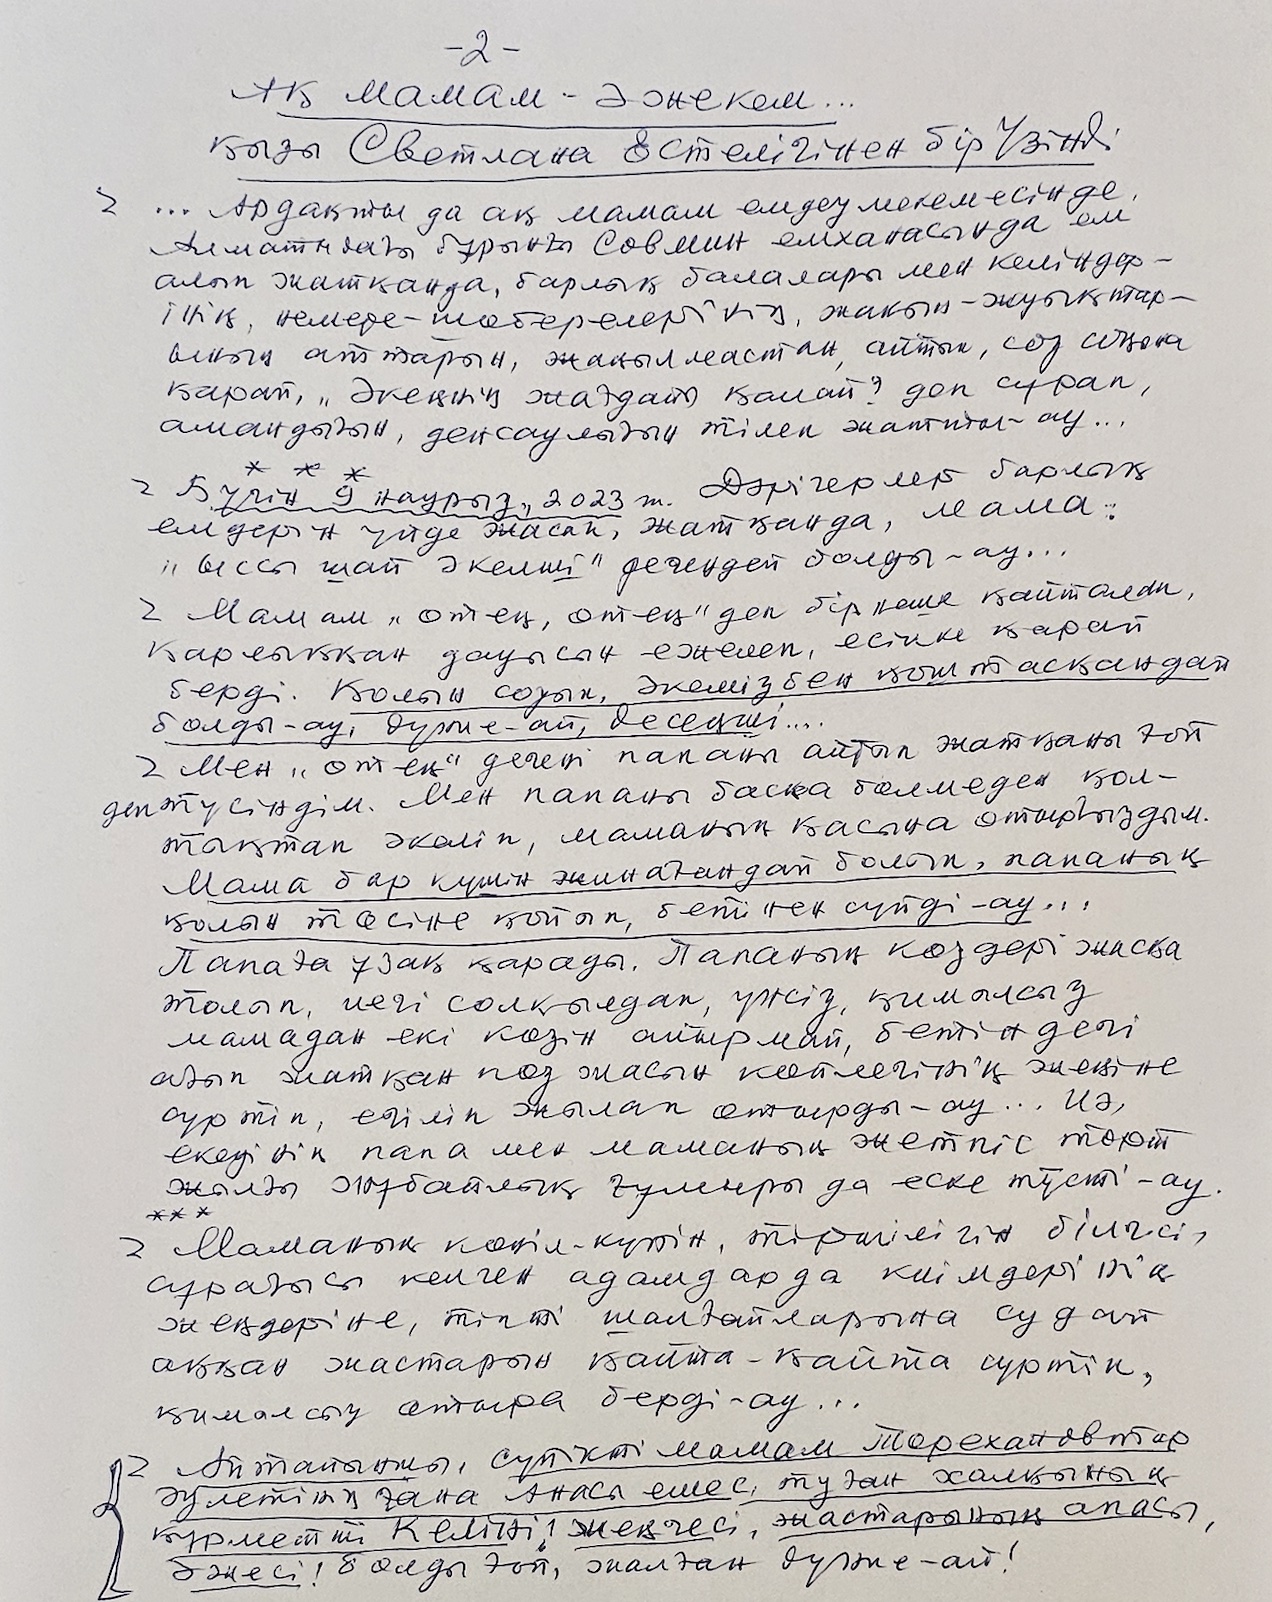 -2-
Ақ мамам - әжекем...
қызы Светлана Естелігінен бір Үзінді
... Ардақты да ақ мамам емдеу мекемесінде,
Алматыдағы бұрынғы Совмин емханасында ем
алып жатқанда, барлық балалары мен келіндер-
інің, немере-шөберелерінің, жақын-жуықтар-
ының аттарын, жаңылмастан, айтып, сөз соңына
қарай, „Әкеңнің жағдайы қалай? деп сұрап,
амандығын, денсаулығын тілеп жатты-ау...
* * *
Бүгін 9 наурыз, 2023 ж. Дәрігерлер барлық
емдерін үйде жасап, жатқанда, мама:
„ыссы шай әкелші" дегендей болды-ау...
Мамам „отец, отец" деп бірнеше қайталап,
қарлыққан дауысын әжелеп, есікке қарай
берді. Қолын созып, әкемізбен қоштасқандай
болды-ау, дүние-ай, десеңші....
Мен „отец" дегені папаны айтып жатқаны ғой
деп түсіндім. Мен папаны басқа бөлмеден қол-
тықтап әкеліп, маманың қасына отырғыздым.
Мама бар күшін жинағандай болып, папаның
қолын төсіне қойып, бетінен сүйді-ау...
Папаға ұзақ қарады. Папаның көздері жасқа
толып, иегі солқылдап, үнсіз, қимылсыз
мамадан екі көзін айырмай, бетіндегі
ағып жатқан көз жасын көйлегінің жеңіне
сүртіп, егіліп жылап отырды-ау... Иә,
екеуінің папа мен маманың жетпіс төрт
жылғы жұбайлық ғұмыры да еске түсті-ау.
* * *
Маманың көңіл-күйін, тіршілігін білгісі,
сұрағысы келген адамдарда киімдерінің
жеңдеріне, тіпті шалғайларына судай
аққан жастарын қайта-қайта сүртіп,
қималсыу отыра берді-ау...
Айтайыншы, сүйікті мамам Төрехановтар
әулетінің ғана Анасы емес, туған халқының
құрметті Келіні! Жеңгесі, жастарының апасы,
Әжесі! болды ғой, жалған дүние-ай!